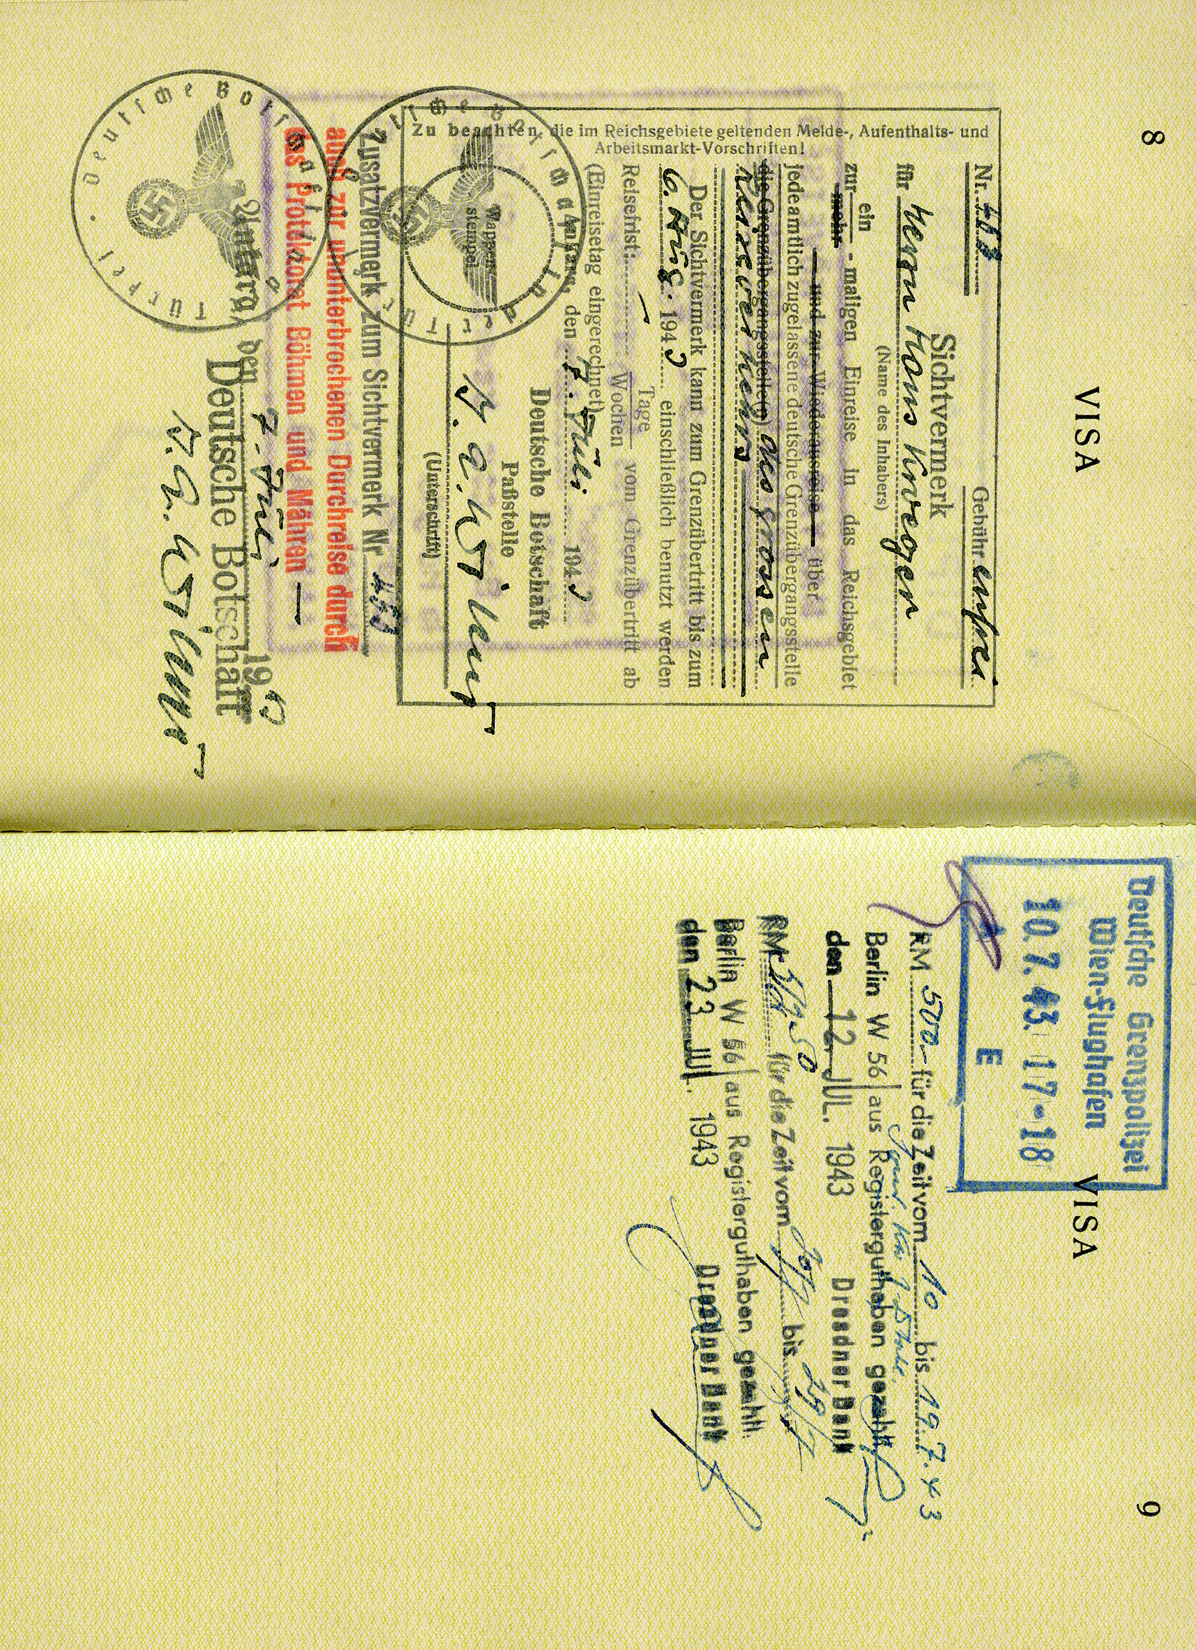 8
VISA
Nr. 453 Gebühr
Sichtvermerk
für Herrn Hans
(Name des Inhabers)
zur ein
mehr - maligen Einreise in das Reichsgebiet
und zur Wiederausreise über
jede amtlich zugelassene deutsche Grenzübergangsstelle
die Grenzübergangsstelle(n) des grossen
Reiseverkehrs
Der Sichtvermerk kann zum Grenzübertritt bis zum
6. Aug. 1943 einschließlich benutzt werden
Reisefrist: Tage
Wochen vom Grenzübertritt ab
(Einreisetag eingerechnet)
Ankara, den 7. Juli 1943
Deutsche Botschaft
Paßstelle
Wappen-
stempel
J. A.
(Unterschrift)
Zu beachten, die im Reichsgebiete geltenden Melde-, Aufenthalts- und
Arbeitsmarkt-Vorschriften!
Deutsche Botschaft in der Türkei
Zusatzvermerk zum Sichtvermerk Nr. 453
auch zur ununterbrochenen Durchreise durch
das Protektorat Böhmen und Mähren
Ankara, den 7. Juli 1943
Deutsche Botschaft
J. A.
Deutsche Botschaft Türkei
9
VISA
Deutsche Grenzpolizei
Wien-Flughafen
10.7.43. 17-18
E
RM 500.- für die Zeit vom 10 bis 19.7.43
Berlin W 56 aus Registerguthaben gezahlt
den 12. JUL. 1943 Dresdner Bank
RM für die Zeit vom bis
Berlin W 56 aus Registerguthaben gezahlt.
den 23. JUL. 1943 Dresdner Bank